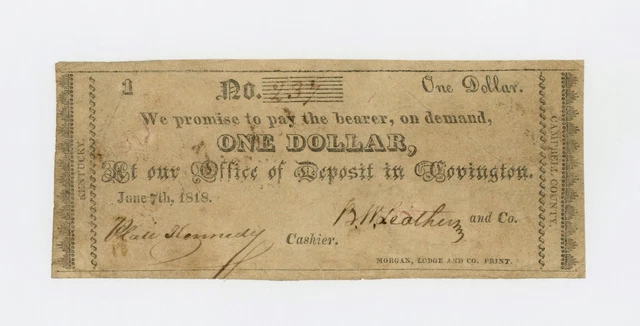 1 No. 237 One Dollar.
We promise to pay the bearer, on demand,
ONE DOLLAR,
At our Office of Deposit in Covington.
June 7th, 1818.
B. W. Leathers and Co.
Kennedy Cashier.
MORGAN, LODGE AND CO. PRINT.
KENTUCKY.
CAMPBELL COUNTY.